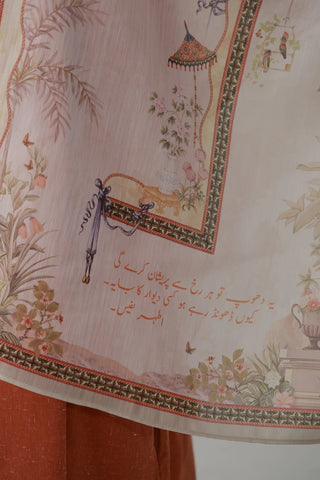 یہ دھوپ تو ہر رخ سے پریشان کرے گی
کیوں ڈھونڈ رہے ہو کسی دیوار کا سایہ۔
اطہر نفیس۔